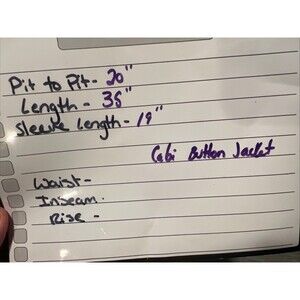 Pit to Pit - 20"
Length - 35"
Sleeve Length - 19"
Cabi Button Jacket
Waist -
Inseam.
Rise -